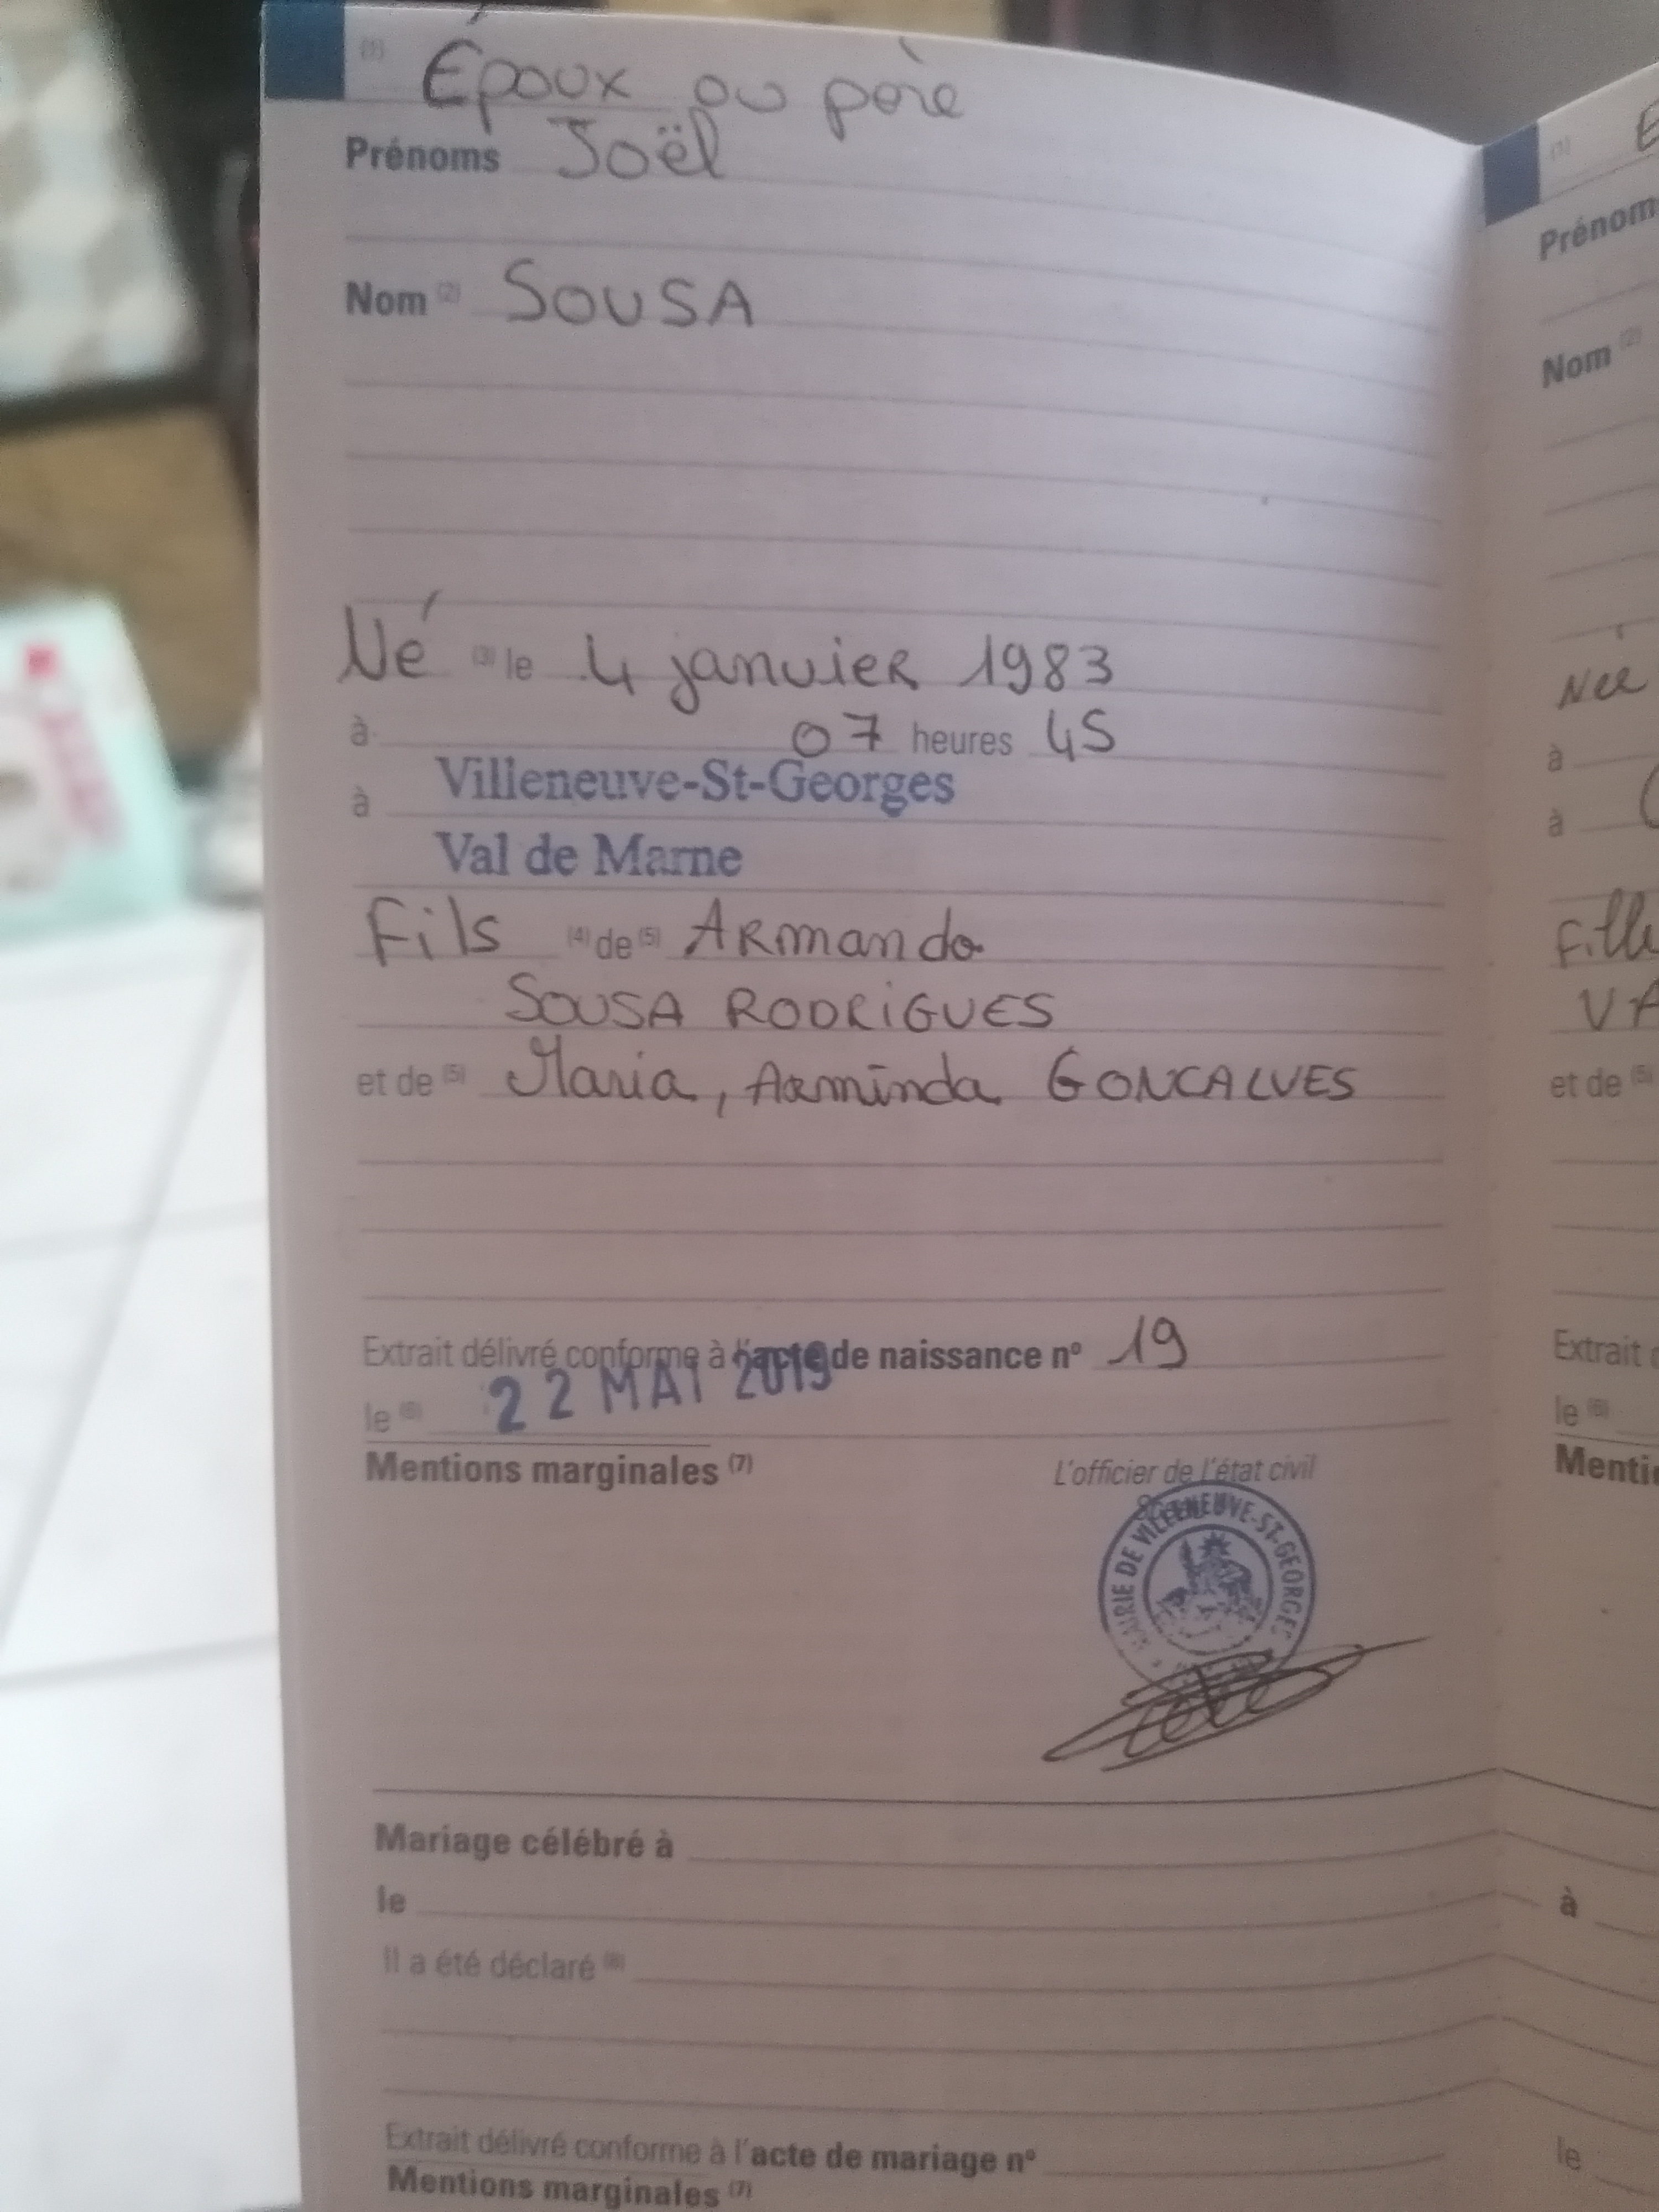 (1) Époux ou père
Prénoms Joël
Nom (2) SOUSA
Né (3) le 4 janvier 1983
à 07 heures 45
à Villeneuve-St-Georges
Val de Marne
Fils (4) de (5) Armando
SOUSA RODRIGUES
et de (5) Maria, Arminda GONCALVES
Extrait délivré conforme à l'acte de naissance nº 19
le (6) 22 MAI 2019
Mentions marginales (7)
L'officier de l'état civil
MAIRIE DE VILLENEUVE-ST-GEORGES
Mariage célébré à
le
Il a été déclaré (8)
Extrait délivré conforme à l'acte de mariage nº
Mentions marginales (7)
(1)
Prénom
Nom (2)
Née
à
à
Fille
VA
et de (5)
Extrait
le (6)
Menti
à
le